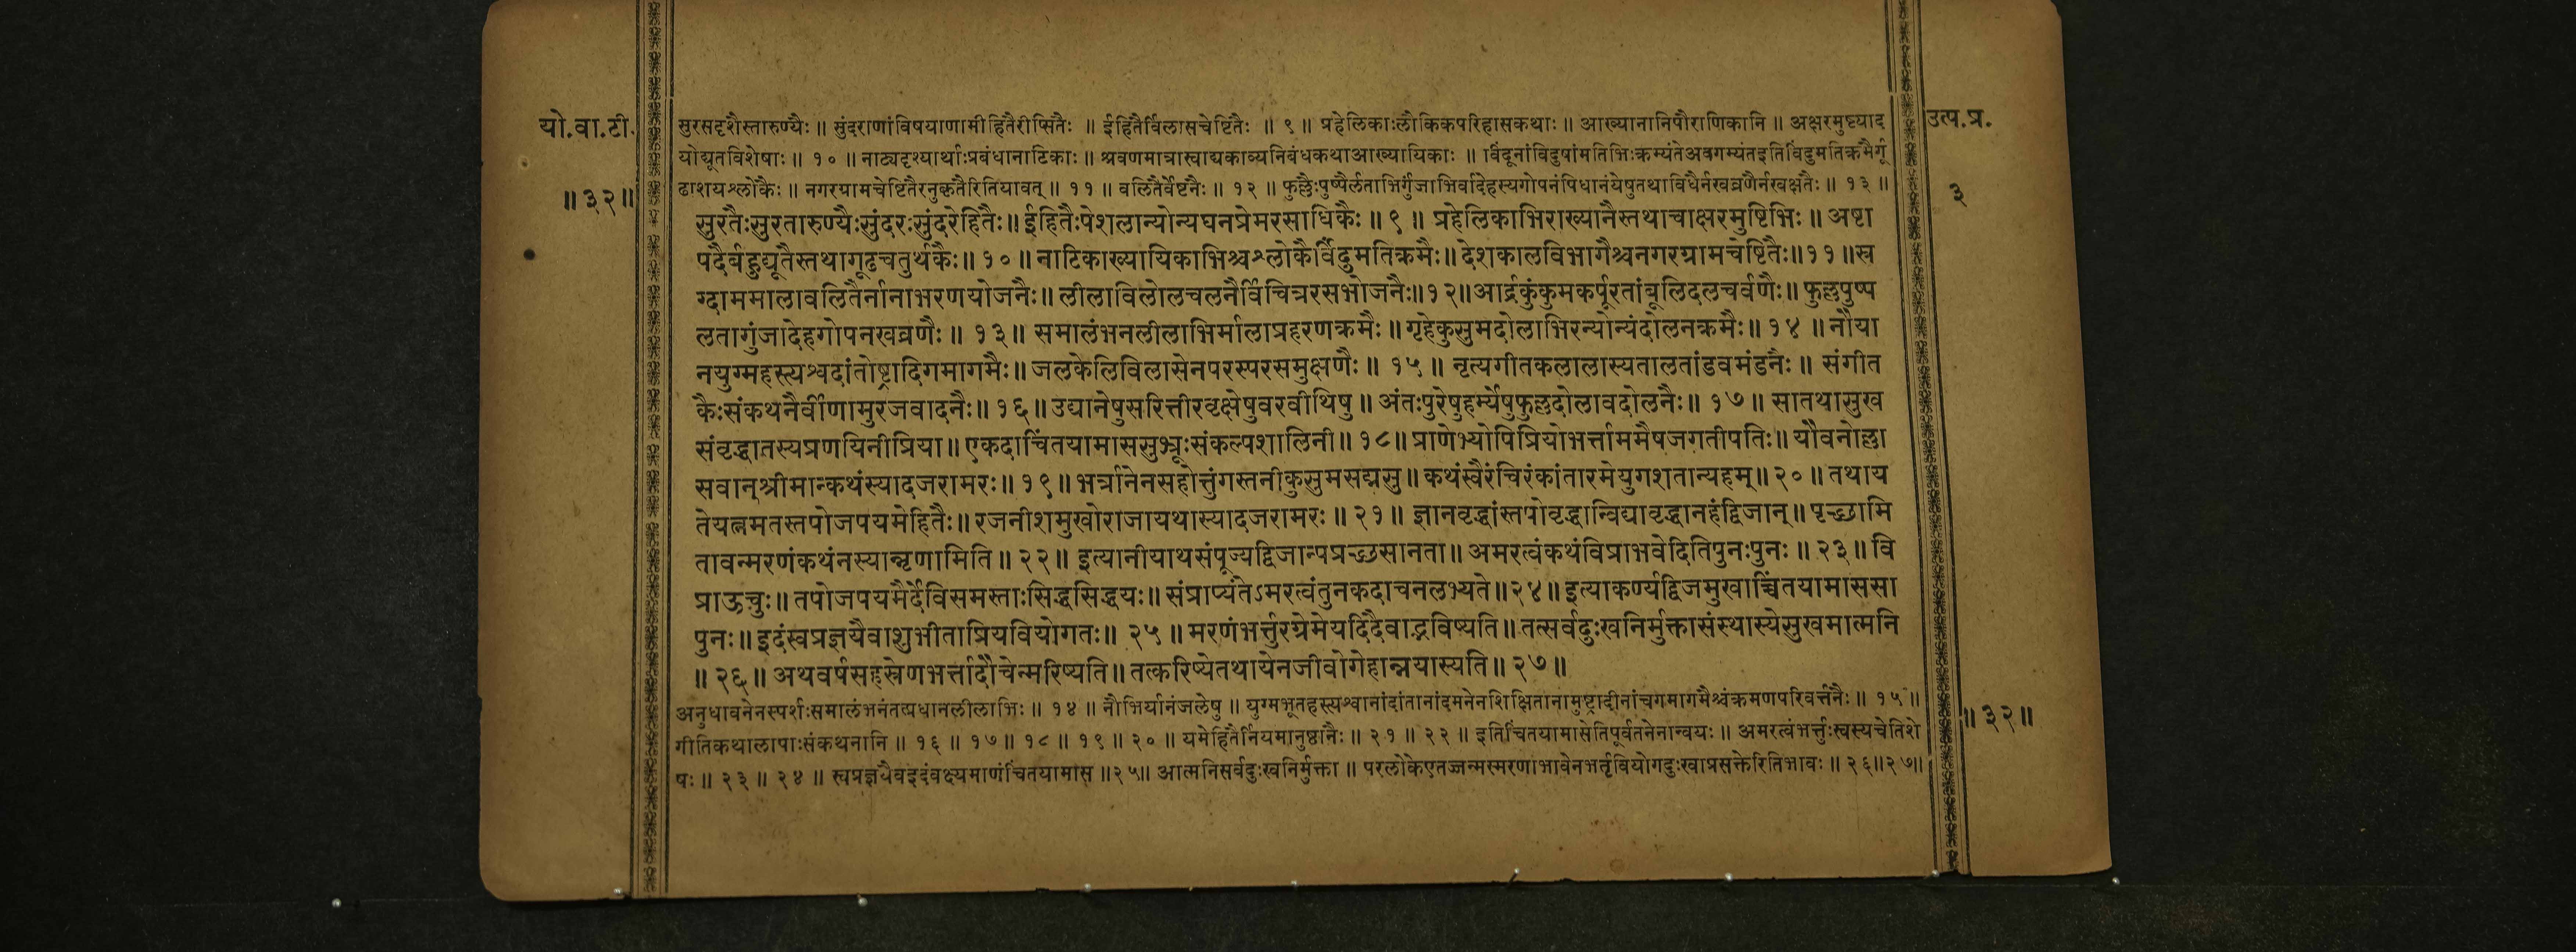 यो.वा.टी.
॥३२॥
सुरसदृशैस्तारुण्यैः॥ सुंदराणांविषयाणामीहितैरीप्सितैः ॥ ईहितैर्विलासचेष्टितैः ॥ ९ ॥ प्रहेलिकाःलौकिकपरिहासकथाः॥ आख्यानानिपौराणिकानि॥ अक्षरमुष्ट्याद
योद्यूतविशेषाः॥ १० ॥ नाट्यदृश्यार्थाःप्रबंधानाटिकाः॥ श्रवणमात्रास्वाद्यकाव्यनिबंधकथाआख्यायिकाः ॥ विंदूनांविदुषांमतिभिःक्रम्यंतेअवगम्यंतइतिबिंदुमतिक्रमैर्गू
ढाशयश्लोकैः॥ नगरग्रामचेष्टितैरनुकृतैरितियावत्॥ ११॥ वलितैर्वेष्टनैः॥ १२ ॥ फुल्लैःपुष्पैर्लताभिर्गुंजाभिर्वादेहस्यगोपनंपिधानंयेषुतथाविधैर्नखव्रणैर्नखक्षतैः॥ १३॥
सुरतैःसुरतारुण्यैःसुंदरःसुंदरेहितैः॥ईहितैःपेशलान्योन्यघनप्रेमरसाधिकैः॥९॥ प्रहेलिकाभिराख्यानैस्तथाचाक्षरमुष्टिभिः॥ अष्टा
पदैर्बहुद्यूतैस्तथागूढचतुर्थकैः॥१०॥नाटिकाख्यायिकाभिश्चश्लोकैर्विंदुमतिक्रमैः॥देशकालविभागैश्चनगरग्रामचेष्टितैः॥११॥स्र
ग्दाममालावलितैर्नानाभरणयोजनैः॥लीलाविलोलचलनैर्विचित्ररसभोजनैः॥१२॥आर्द्रकुंकुमकर्पूरतांबूलिदलचर्वणैः॥फुल्लपुष्प
लतागुंजादेहगोपनखव्रणैः॥ १३॥ समालंभनलीलाभिर्मालाप्रहरणक्रमैः॥गृहेकुसुमदोलाभिरन्योन्यंदोलनक्रमैः॥१४॥नौया
नयुग्महस्त्यश्वदांतोष्ट्रादिगमागमैः॥जलकेलिविलासेनपरस्परसमुक्षणैः॥ १५॥ नृत्यगीतकलालास्यतालतांडवमंडनैः॥ संगीत
कैःसंकथनैर्वीणामुरजवादनैः॥१६॥उद्यानेषुसरित्तीरवृक्षेषुवरवीथिषु॥अंतःपुरेषुहर्म्येषुफुल्लदोलावदोलनैः॥१७॥ सातथासुख
संवृद्धातस्यप्रणयिनीप्रिया॥एकदाचिंतयामाससुभ्रूःसंकल्पशालिनी॥१८॥प्राणेभ्योपिप्रियोभर्त्ताममैषजगतीपतिः॥यौवनोल्ला
सवान्श्रीमान्कथंस्यादजरामरः॥१९॥भर्त्रानेनसहोत्तुंगस्तनीकुसुमसद्मसु॥कथंस्वैरंचिरंकांतारमेयुगशतान्यहम्॥२०॥तथाय
तेयत्नमतस्तपोजपयमेहितैः॥रजनीशमुखोराजायथास्यादजरामरः॥२१॥ ज्ञानवृद्धांस्तपोवृद्धान्विद्यावृद्धानहंद्विजान्॥पृच्छामि
तावन्मरणंकथंनस्यान्नृणामिति॥२२॥ इत्यानीयाथसंपूज्यद्विजान्पप्रच्छसानता॥अमरत्वंकथंविप्राभवेदितिपुनःपुनः॥२३॥वि
प्राऊचुः॥तपोजपयमैर्देविसमस्ताःसिद्धसिद्धयः॥संप्राप्यंतेऽमरत्वंतुनकदाचनलभ्यते॥२४॥इत्याकर्ण्यद्विजमुखाच्चिंतयामाससा
पुनः॥इदंस्वप्रज्ञयैवाशुभीताप्रियवियोगतः॥ २५॥मरणंभर्त्तुरग्रेमेयदिदैवाद्भविष्यति॥तत्सर्वदुःखनिर्मुक्तासंस्थास्येसुखमात्मनि
॥२६॥अथवर्षसहस्रेणभर्त्तादौचेन्मरिष्यति॥तत्करिष्येतथायेनजीवोगेहान्नयास्यति॥२७॥
अनुधावनेनस्पर्शःसमालंभनंतत्प्रधानलीलाभिः॥ १४ ॥ नौभिर्यानंजलेषु॥ युग्मभूतहस्त्यश्वानांदांतानांदमनेनशिक्षितानामुष्ट्रादीनांचगमागमैश्चंक्रमणपरिवर्त्तनैः॥ १५॥
गीतिकथालापाःसंकथनानि॥ १६॥ १७॥ १८॥ १९॥२०॥ यमेहितैर्नियमानुष्ठानैः॥२१॥२२॥ इतिचिंतयामासेतिपूर्वतनेनान्वयः॥ अमरत्वंभर्त्तुःस्वस्यचेतिशे
षः॥२३॥२४॥ स्वप्रज्ञयैवइदंवक्ष्यमाणंचिंतयामास॥२५॥ आत्मनिसर्वदुःखनिर्मुक्ता॥ परलोकेएतज्जन्मस्मरणाभावेनभर्तृवियोगदुःखाप्रसक्तेरितिभावः॥२६॥२७॥
उत्प.प्र.
३
॥३२॥